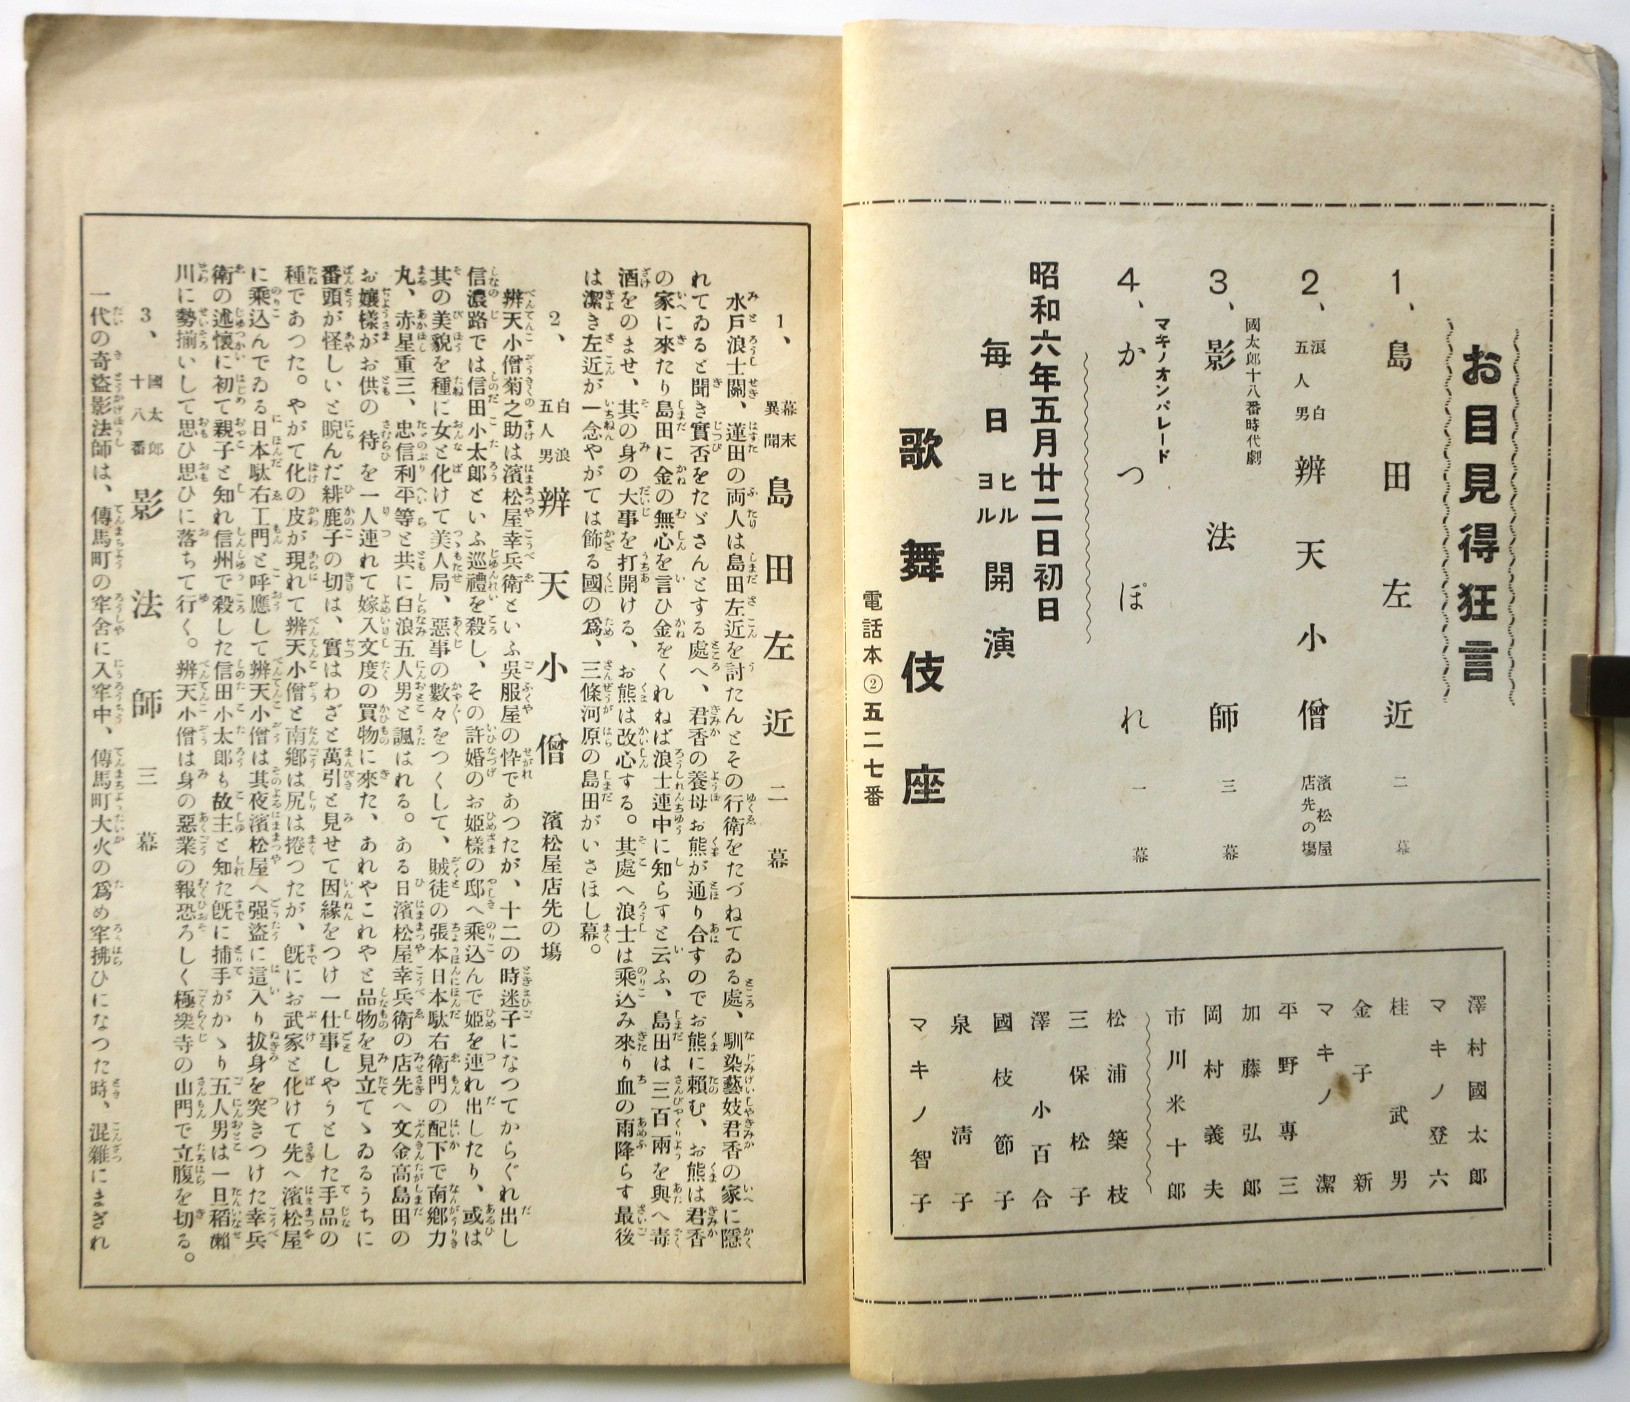 お目見得狂言
1、島田左近 二幕
2、浪白五人男 辨天小僧 濱松屋店先の塲
國太郎十八番時代劇
3、影法師 三幕
マキノオンパレード
4、かつぽれ 一幕
昭和六年五月廿二日初日
毎日 ヒルヨル 開演
歌舞伎座
電話本②五二七番
澤村國太郎
マキノ登六
桂武男
金子新
マキノ潔
平野専三
加藤弘郎
岡村義夫
市川米十郎
松浦築枝
三保松子
澤小百合
國枝節子
泉淸子
マキノ智子
1、幕末異聞 島田左近 二幕
水戸浪士關、蓮田の両人は島田左近を討たんとその行衛をたづねてゐる處、馴染藝妓君香の家に隱
れてゐると聞き實否をたゞさんとする處へ、君香の養母お熊が通り合すのでお熊に賴む、お熊は君香
の家に來たり島田に金の無心を言ひ金をくれねば浪士連中に知らすと云ふ、島田は三百兩を與へ毒
酒をのませ、其の身の大事を打開ける、お熊は改心する。其處へ浪士は乘込み來り血の雨降らす最後
は潔き左近が一念やがては飾る國の爲、三條河原の島田がいさほし幕。
2、白浪五人男 辨天小僧 濱松屋店先の塲
辨天小僧菊之助は濱松屋幸兵衛といふ吳服屋の悴であつたが、十二の時迷子になつてからぐれ出し
信濃路では信田小太郎といふ巡禮を殺し、その許婚のお姫樣の邸へ乘込んで姫を連れ出したり、或は
其の美貌を種に女と化けて美人局、惡事の數々をつくして、賊徒の張本日本駄右衛門の配下で南鄕力
丸、赤星重三、忠信利平等と共に白浪五人男と諷はれる。ある日濱松屋幸兵衛の店先へ文金高島田の
お孃樣がお供の侍を一人連れて嫁入支度の買物に來た、あれやこれやと品物を見立てゝゐるうちに
番頭が怪しいと睨んだ緋鹿子の切は、實はわざと萬引と見せて因緣をつけ一仕事しやうとした手品の
種であつた。やがて化の皮が現れて辨天小僧と南鄕は尻は捲つたが、旣にお武家と化けて先へ濱松屋
に乘込んでゐる日本駄右エ門と呼應して辨天小僧は其夜濱松屋へ强盗に這入り拔身を突きつけた幸兵
衛の述懷に初て親子と知れ信州で殺した信田小太郎も故主と知た旣に捕手がかゝり五人男は一旦稻瀨
川に勢揃いして思ひ思ひに落ちて行く。辨天小僧は身の惡業の報恐ろしく極樂寺の山門で立腹を切る。
3、國太郎十八番 影法師 三幕
一代の奇盗影法師は、傳馬町の牢舍に入牢中、傳馬町大火の爲め牢拂ひになつた時、混雜にまぎれ